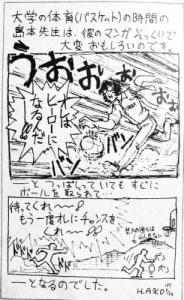 大学の体育(バスケット)の時間の
島本先生は、彼のマンガそっくりで
大変おもしろいのです。
うおおおお
オレは
ヒーローに
なるんだ!!
バン
バン
バン
—とつっぱしっていても すぐに
ボールを取られて…
待ってくれ〜!!
もう一度オレにチャンスを
くれ〜!!
—となるのでした。